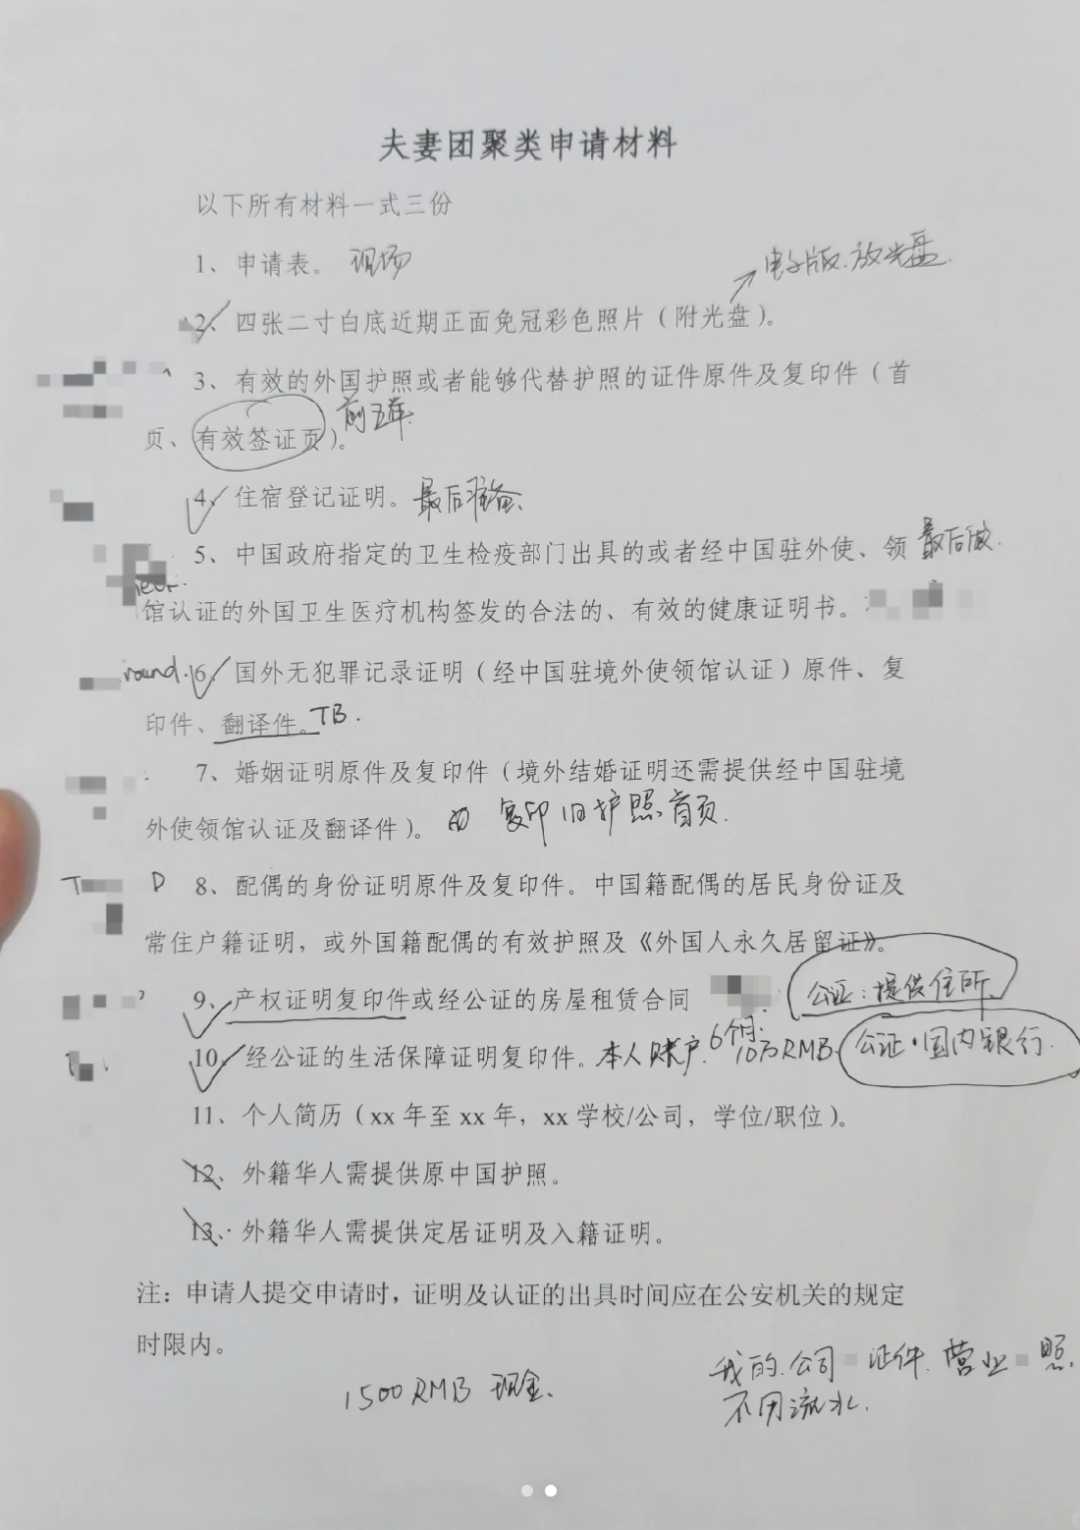 夫妻团聚类申请材料
以下所有材料一式三份
1、申请表。 现场
电子版.放光盘.
2、四张二寸白底近期正面免冠彩色照片（附光盘）。
3、有效的外国护照或者能够代替护照的证件原件及复印件（首
页、有效签证页）。 前五年.
4、住宿登记证明。 最后准备.
5、中国政府指定的卫生检疫部门出具的或者经中国驻外使、领 最后做.
馆认证的外国卫生医疗机构签发的合法的、有效的健康证明书。
round. 6、国外无犯罪记录证明（经中国驻境外使领馆认证）原件、复
印件、翻译件。TB.
7、婚姻证明原件及复印件（境外结婚证明还需提供经中国驻境
外使领馆认证及翻译件）。 复印旧护照首页.
T D 8、配偶的身份证明原件及复印件。中国籍配偶的居民身份证及
常住户籍证明，或外国籍配偶的有效护照及《外国人永久居留证》。
9、产权证明复印件或经公证的房屋租赁合同 公证：提供住所
10、经公证的生活保障证明复印件。本人账户. 6个月. 10万RMB. 公证·国内银行.
11、个人简历（xx 年至 xx 年，xx 学校/公司，学位/职位）。
12、外籍华人需提供原中国护照。
13、外籍华人需提供定居证明及入籍证明。
注：申请人提交申请时，证明及认证的出具时间应在公安机关的规定
时限内。
1500 RMB 现金.
我的.公司 证件.营业 照
不用流水.